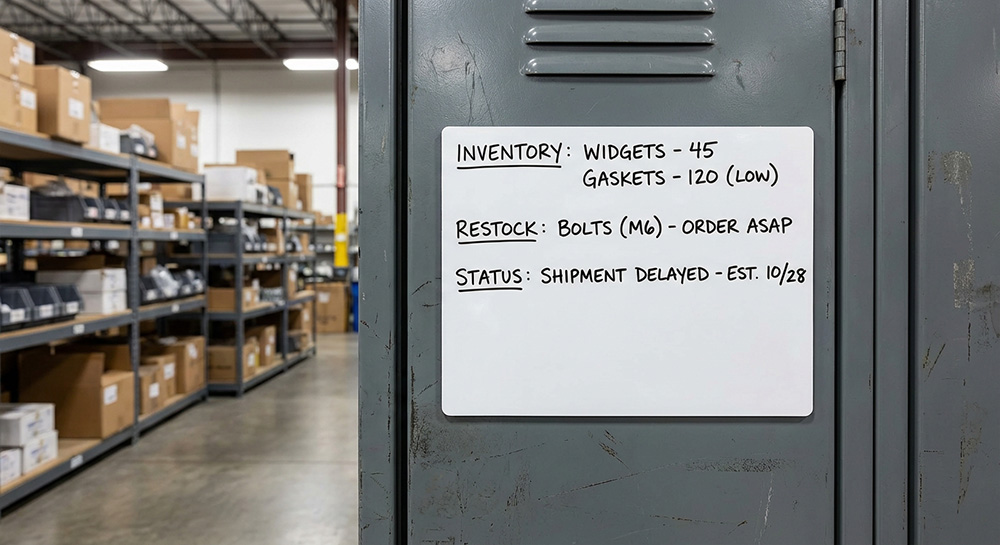 INVENTORY: WIDGETS - 45
GASKETS - 120 (LOW)
RESTOCK: BOLTS (M6) - ORDER ASAP
STATUS: SHIPMENT DELAYED - EST. 10/28